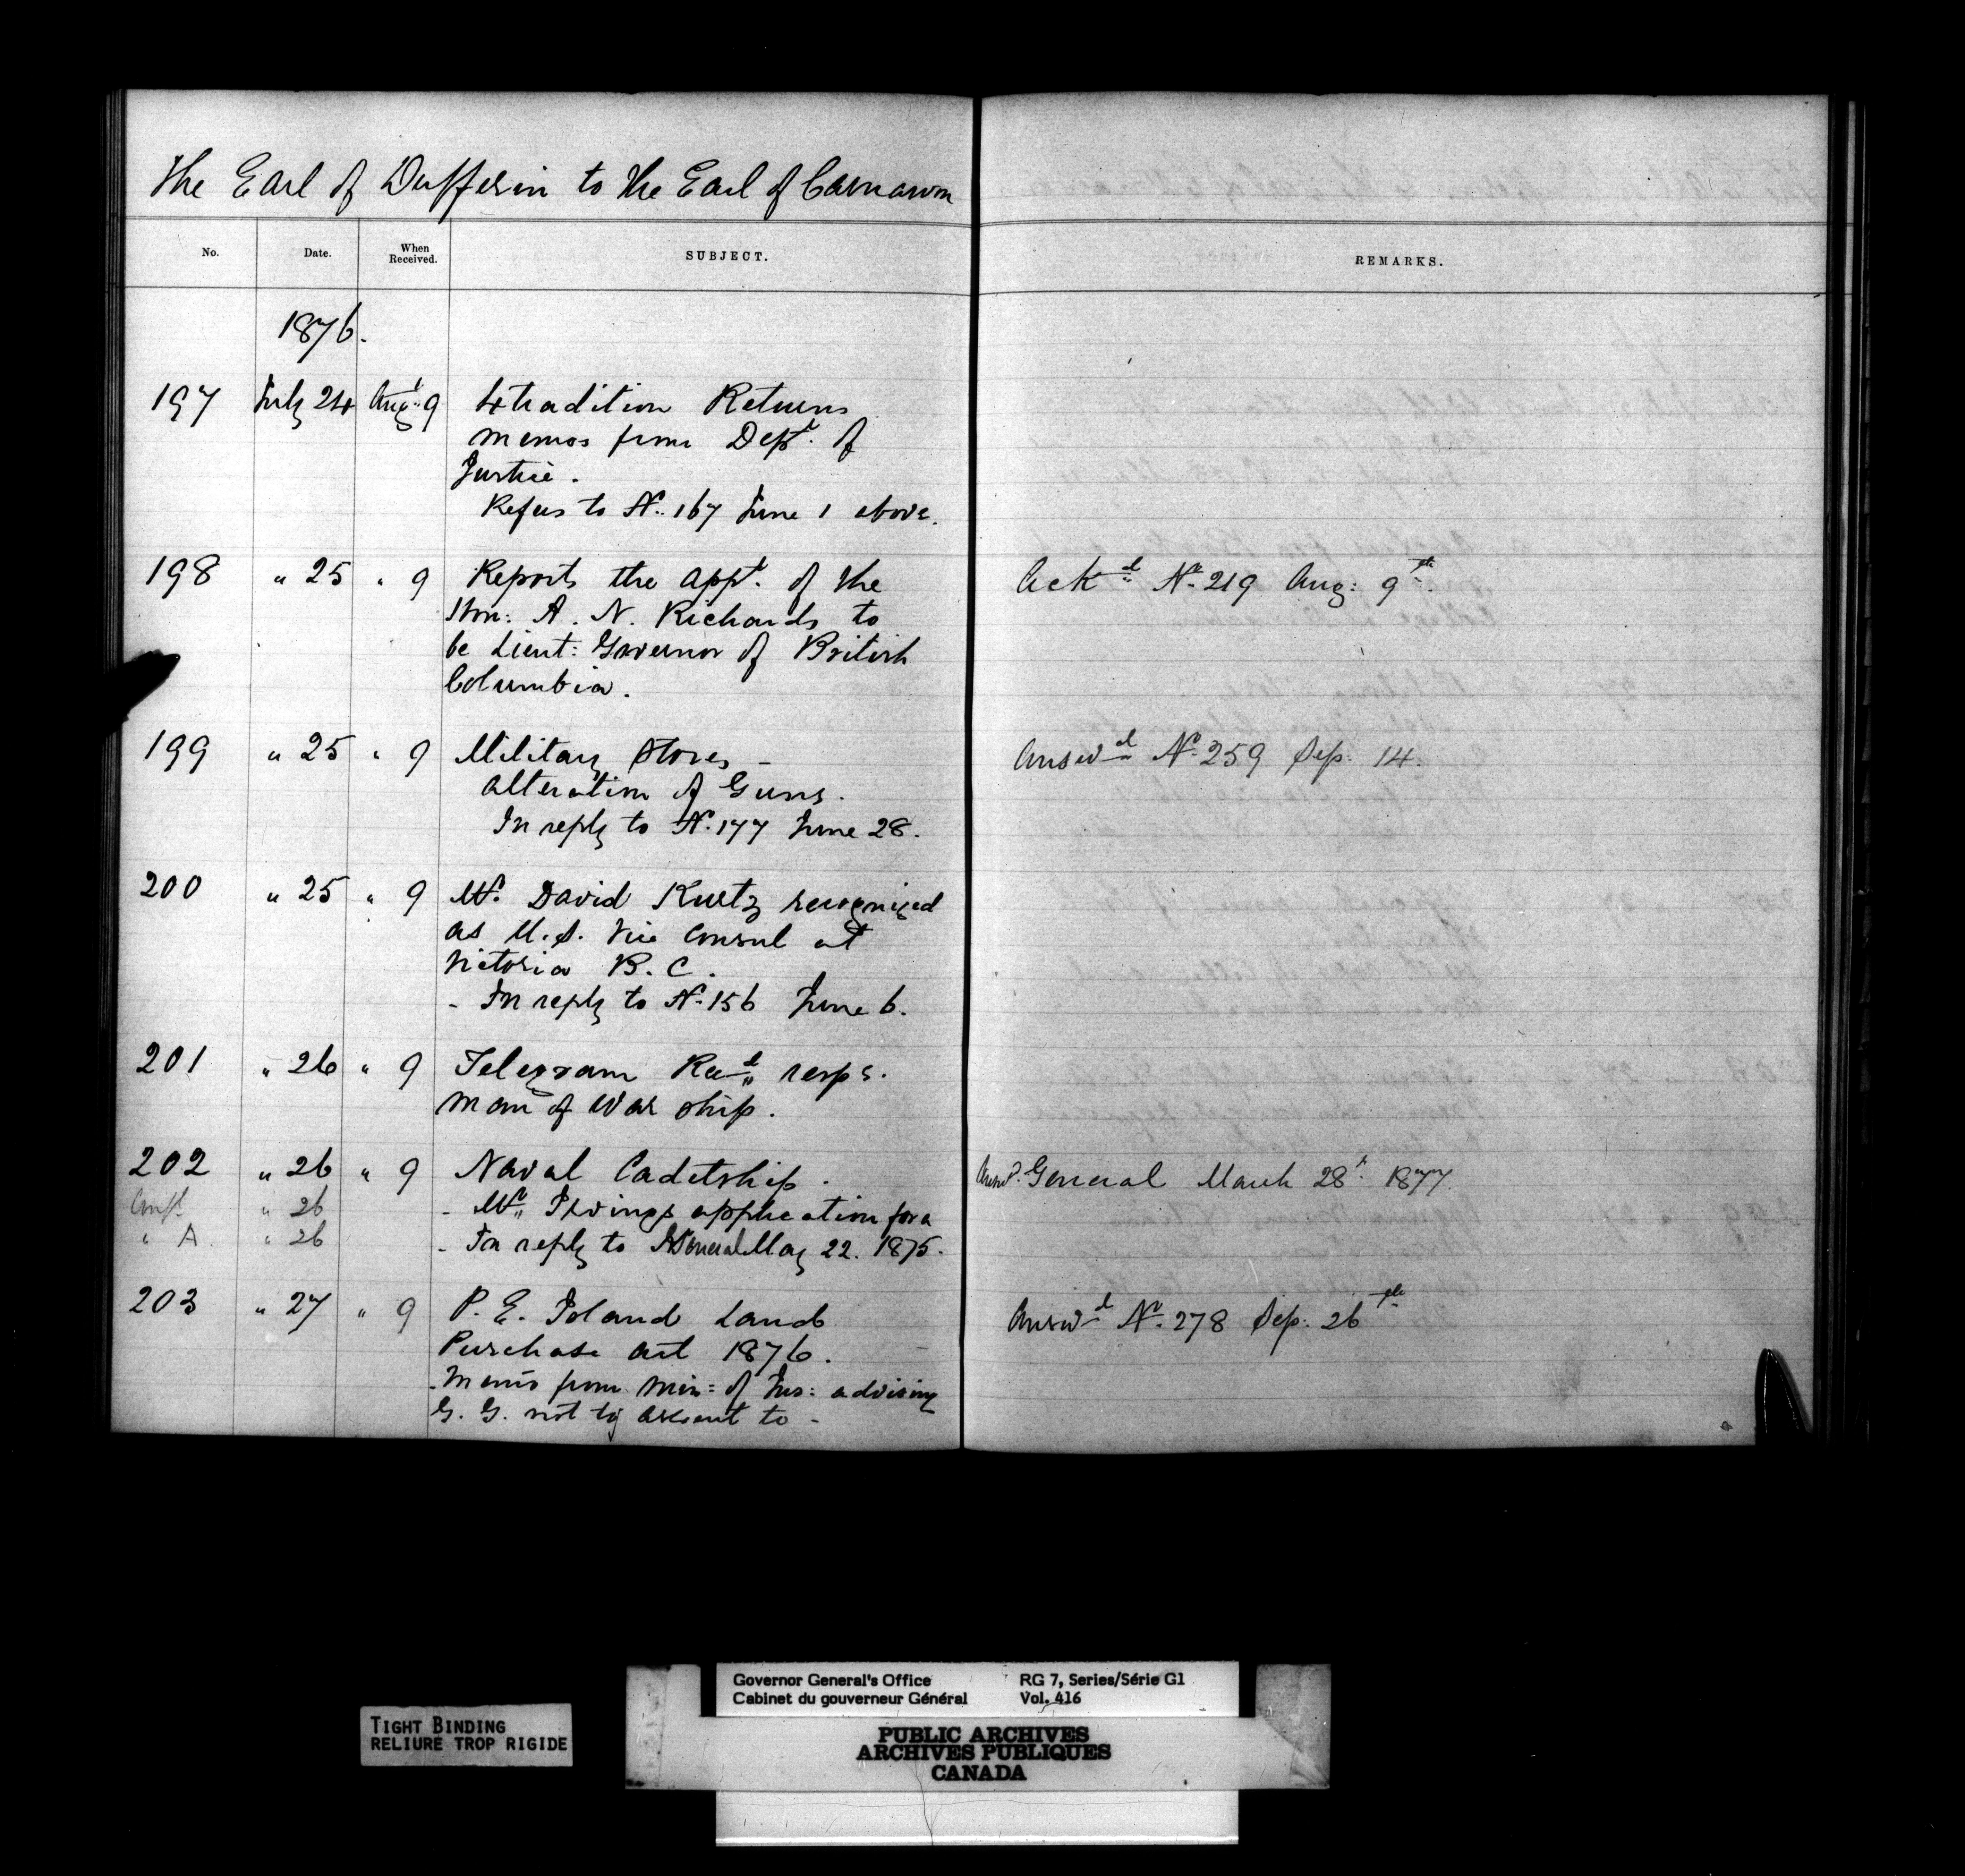 The Earl of Dufferin to the Earl of Carnarvon
No. Date. When Received. SUBJECT. REMARKS.
1876.
197 July 24 Augt 9 Extradition Returns
memos from Dept. of
Justice.
Refers to No. 167 June 1 above.
198 " 25 " 9 Reports the appt. of the Ackd No. 219 Aug: 9th.
Hon: A. N. Richards to
be Lieut: Governor of British
Columbia.
199 " 25 " 9 Military Stores - Answd No. 259 Sep. 14.
alteration of Guns.
In reply to No. 177 June 28.
200 " 25 " 9 Mr. David Kurtz recognized
as U.S. Vice Consul at
Victoria B.C.
- In reply to No. 156 June 6.
201 " 26 " 9 Telegram Recd resps.
man of war ship.
202 " 26 " 9 Naval Cadetship. Answd. General March 28t. 1877.
Conf. " 26 - Mr Irvings application for a
" A. " 26 - In reply to General May 22. 1875.
203 " 27 " 9 P. E. Island Land Answd No. 278 Sep. 26th
Purchase Act 1876.
- Memo from Min: of Jus: advising
G. G. not to assent to -
Governor General's Office RG 7, Series/Série G1
Cabinet du gouverneur Général Vol. 416
TIGHT BINDING
RELIURE TROP RIGIDE
PUBLIC ARCHIVES
ARCHIVES PUBLIQUES
CANADA